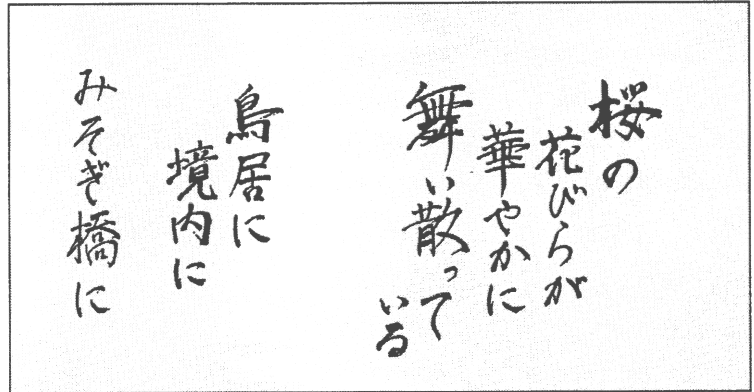 桜の
花びらが
華やかに
舞い散って
いる
鳥居に
境内に
みそぎ橋に